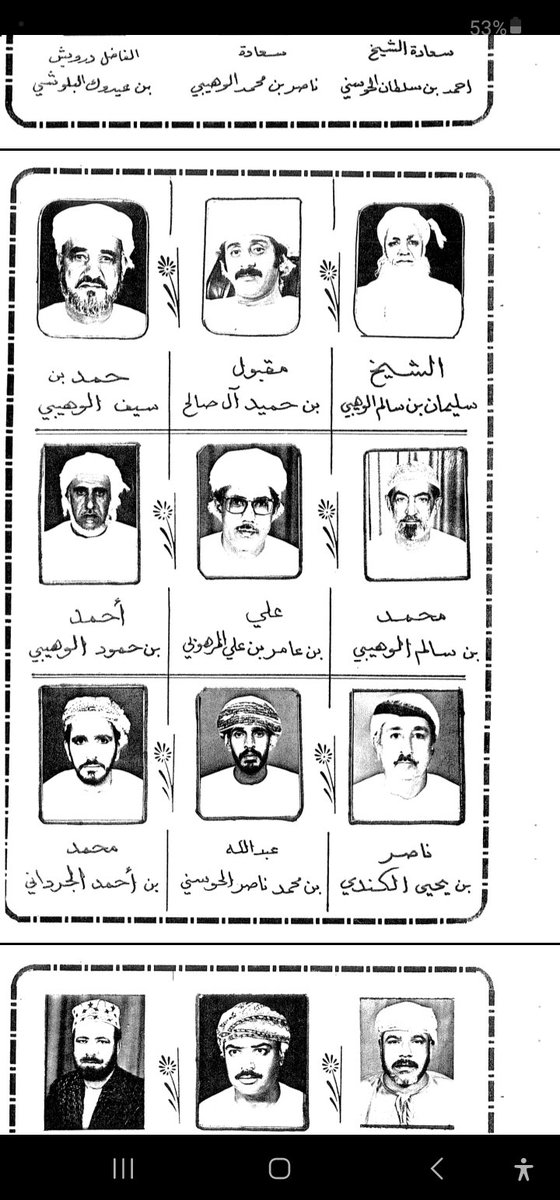 53%
سعادة الشيخ
احمد بن سلطان الحوسني
سعادة
ناصر بن محمد الوهيبي
الفاضل درويش
بن عيدوك البلوشي
الشيخ
سليمان بن سالم الوهيبي
مقبول
بن حميد آل صالح
حمد بن
سيف الوهيبي
محمد
بن سالم الوهيبي
علي
بن عامر بن علي المرهوني
أحمد
بن حمود الوهيبي
ناصر
بن يحيى الكندي
عبدالله
بن محمد ناصر الحوسني
محمد
بن أحمد الجرداني